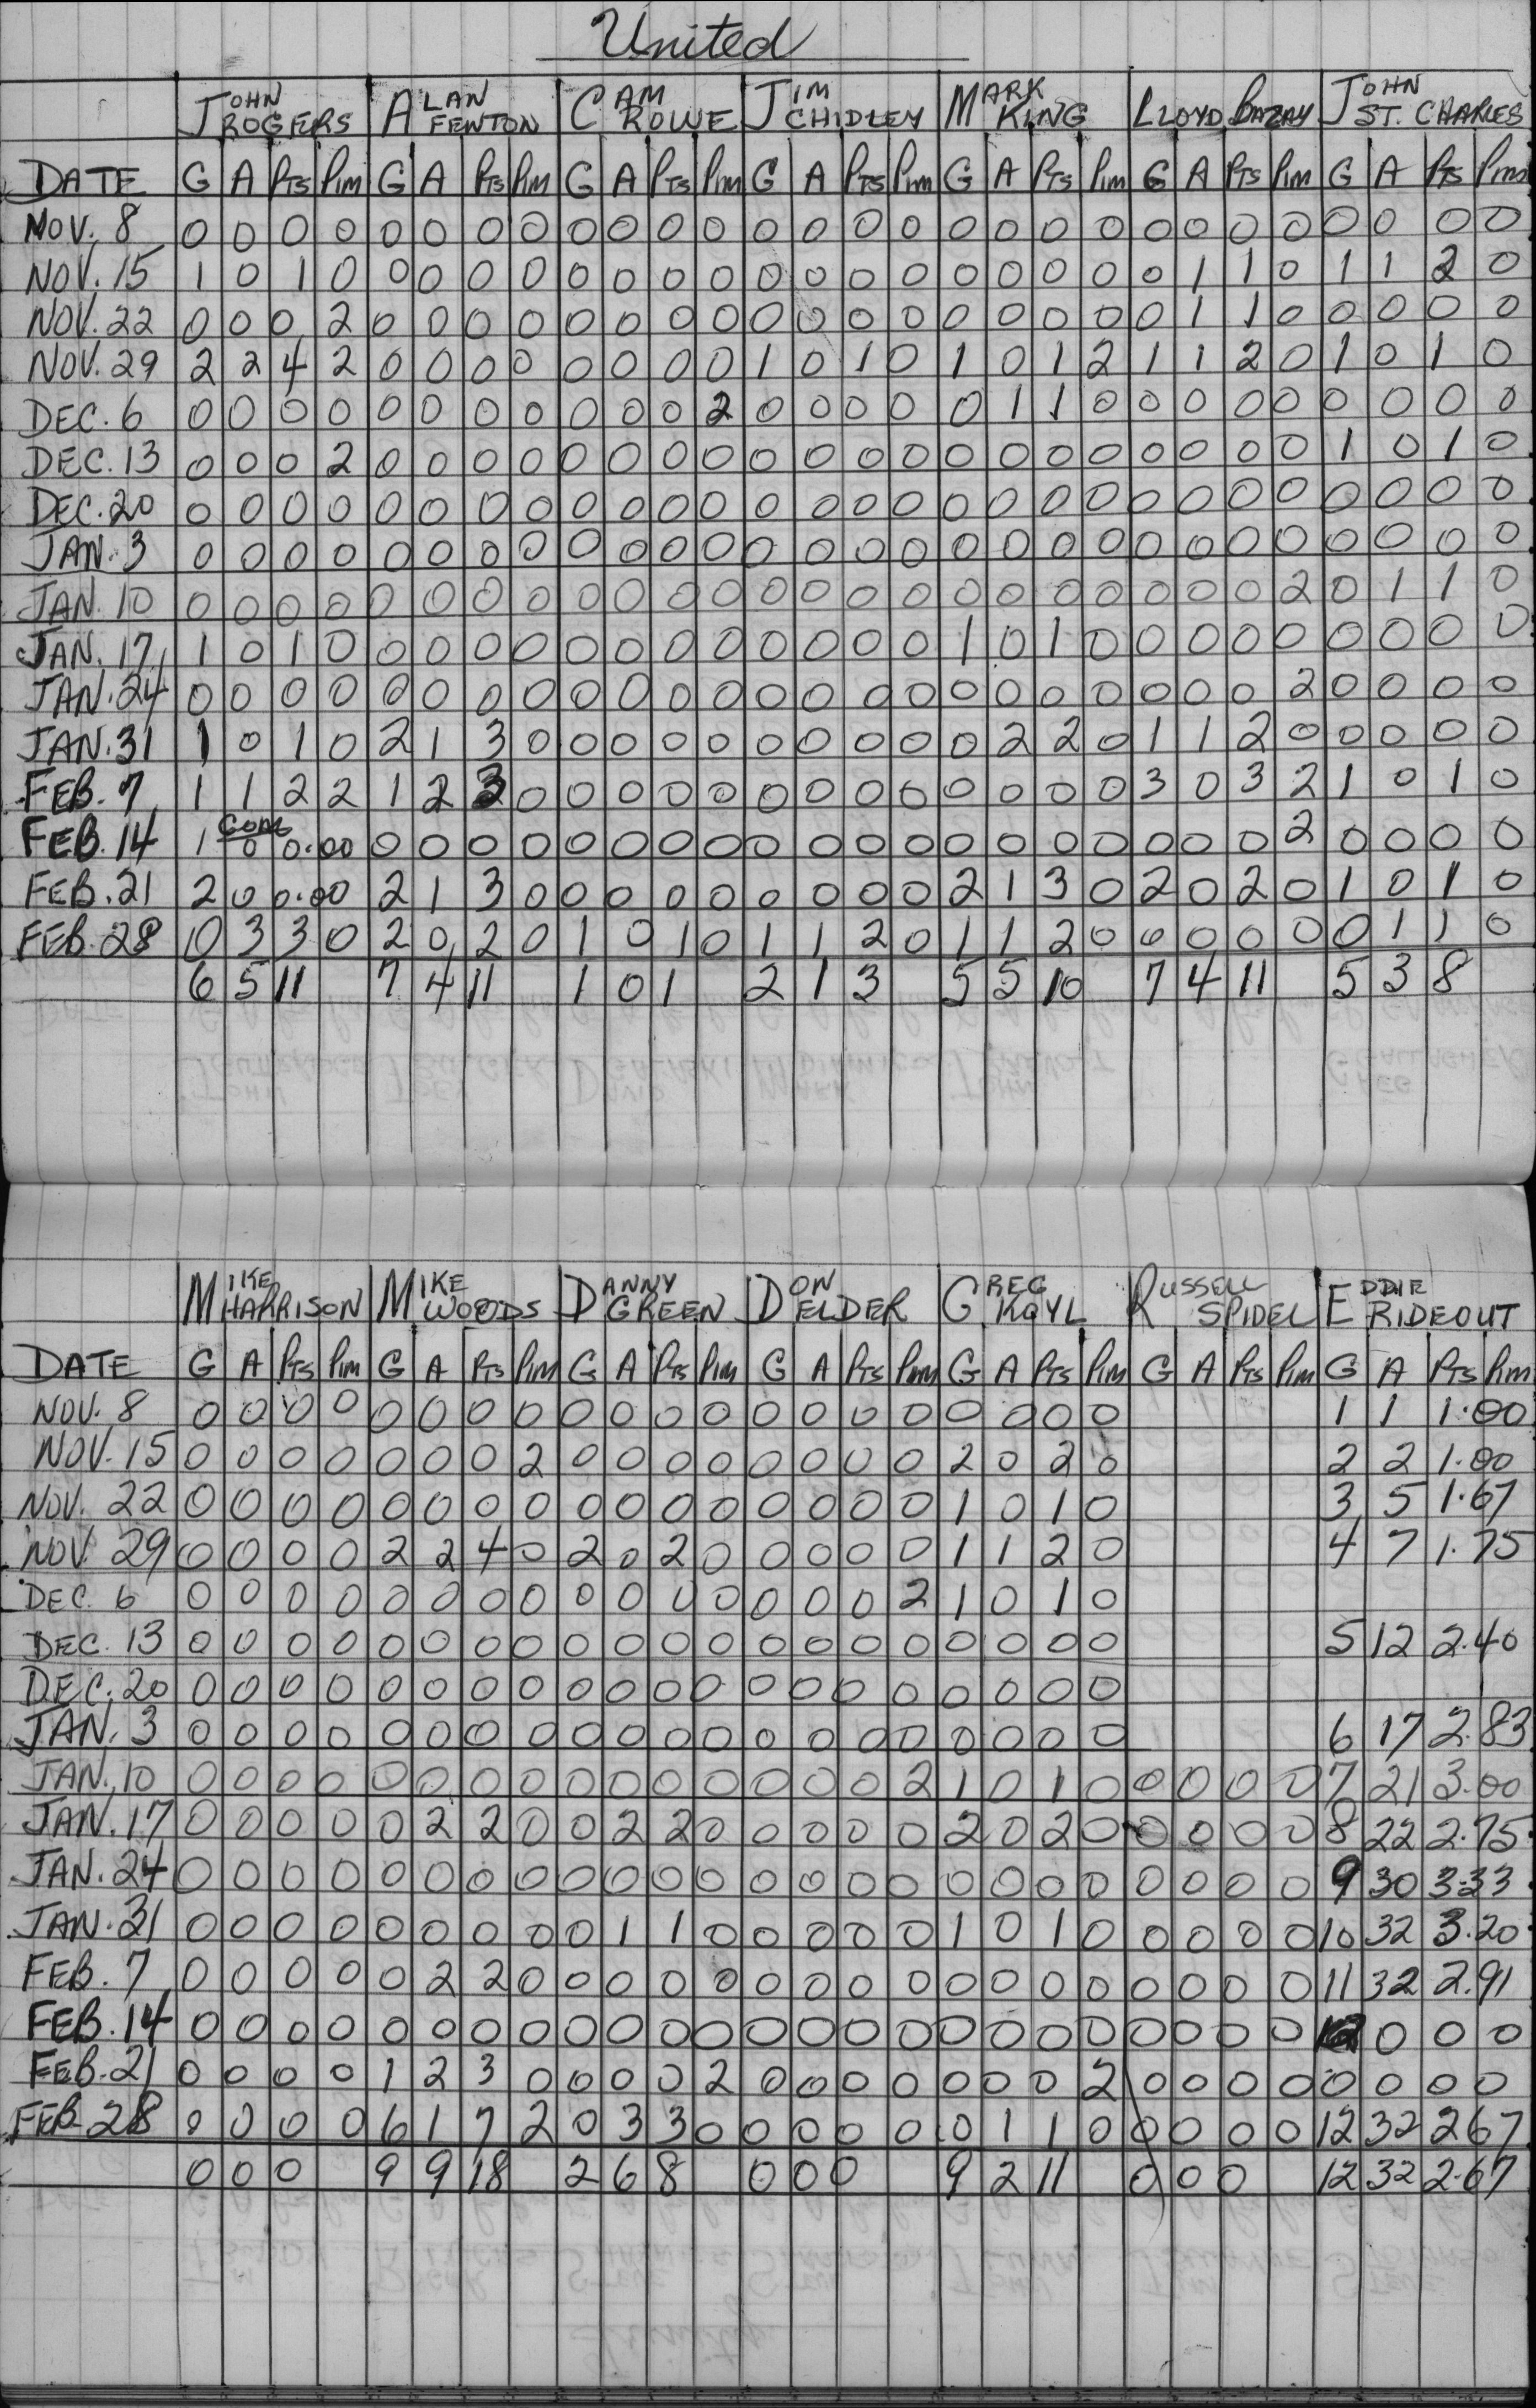 United
JOHN ROGERS ALAN FENTON CAM ROWE JIM CHIDLEY MARK KING LLOYD BAZAY JOHN ST. CHARLES
DATE G A PTS PIM G A PTS PIM G A PTS PIM G A PTS PIM G A PTS PIM G A PTS PIM G A PTS PIM
NOV. 8 0 0 0 0 0 0 0 0 0 0 0 0 0 0 0 0 0 0 0 0 0 0 0 0 0 0 0 0
NOV. 15 1 0 1 0 0 0 0 0 0 0 0 0 0 0 0 0 0 0 0 0 0 1 1 0 1 1 2 0
NOV. 22 0 0 0 2 0 0 0 0 0 0 0 0 0 0 0 0 0 0 0 0 0 1 1 0 0 0 0 0
NOV. 29 2 2 4 2 0 0 0 0 0 0 0 0 1 0 1 0 1 0 1 2 1 1 2 0 1 0 1 0
DEC. 6 0 0 0 0 0 0 0 0 0 0 0 2 0 0 0 0 0 1 1 0 0 0 0 0 0 0 0 0
DEC. 13 0 0 0 2 0 0 0 0 0 0 0 0 0 0 0 0 0 0 0 0 0 0 0 0 1 0 1 0
DEC. 20 0 0 0 0 0 0 0 0 0 0 0 0 0 0 0 0 0 0 0 0 0 0 0 0 0 0 0 0
JAN. 3 0 0 0 0 0 0 0 0 0 0 0 0 0 0 0 0 0 0 0 0 0 0 0 0 0 0 0 0
JAN. 10 0 0 0 0 0 0 0 0 0 0 0 0 0 0 0 0 0 0 0 0 0 0 0 2 0 1 1 0
JAN. 17 1 0 1 0 0 0 0 0 0 0 0 0 0 0 0 0 1 0 1 0 0 0 0 0 0 0 0 0
JAN. 24 0 0 0 0 0 0 0 0 0 0 0 0 0 0 0 0 0 0 0 0 0 0 0 2 0 0 0 0
JAN. 31 1 0 1 0 2 1 3 0 0 0 0 0 0 0 0 0 0 2 2 0 1 1 2 0 0 0 0 0
FEB. 7 1 1 2 2 1 2 3 0 0 0 0 0 0 0 0 0 0 0 0 0 3 0 3 2 1 0 1 0
FEB. 14 1 0 0.00 0 0 0 0 0 0 0 0 0 0 0 0 0 0 0 0 0 0 0 2 0 0 0 0
FEB. 21 2 0 0.00 2 1 3 0 0 0 0 0 0 0 0 0 2 1 3 0 2 0 2 0 1 0 1 0
FEB. 28 0 3 3 0 2 0 2 0 1 0 1 0 1 1 2 0 1 1 2 0 0 0 0 0 0 1 1 0
6 5 11 7 4 11 1 0 1 2 1 3 5 5 10 7 4 11 5 3 8
MIKE HARRISON MIKE WOODS DANNY GREEN DON ELDER GREG KOYL RUSSELL SPIDEL EDDIE RIDEOUT
DATE G A PTS PIM G A PTS PIM G A PTS PIM G A PTS PIM G A PTS PIM G A PTS PIM G A PTS PIM
NOV. 8 0 0 0 0 0 0 0 0 0 0 0 0 0 0 0 0 0 0 0 0 1 1 1.00
NOV. 15 0 0 0 0 0 0 0 2 0 0 0 0 0 0 0 0 2 0 2 0 2 2 1.00
NOV. 22 0 0 0 0 0 0 0 0 0 0 0 0 0 0 0 0 1 0 1 0 3 5 1.67
NOV. 29 0 0 0 0 2 2 4 0 2 0 2 0 0 0 0 0 1 1 2 0 4 7 1.75
DEC. 6 0 0 0 0 0 0 0 0 0 0 0 0 0 0 0 2 1 0 1 0
DEC. 13 0 0 0 0 0 0 0 0 0 0 0 0 0 0 0 0 0 0 0 0 5 12 2.40
DEC. 20 0 0 0 0 0 0 0 0 0 0 0 0 0 0 0 0 0 0 0 0
JAN. 3 0 0 0 0 0 0 0 0 0 0 0 0 0 0 0 0 0 0 0 0 6 17 2.83
JAN. 10 0 0 0 0 0 0 0 0 0 0 0 0 0 0 0 2 1 0 1 0 0 0 0 0 7 21 3.00
JAN. 17 0 0 0 0 0 2 2 0 0 2 2 0 0 0 0 0 2 0 2 0 0 0 0 0 8 22 2.75
JAN. 24 0 0 0 0 0 0 0 0 0 0 0 0 0 0 0 0 0 0 0 0 0 0 0 0 9 30 3.33
JAN. 31 0 0 0 0 0 0 0 0 0 1 1 0 0 0 0 0 1 0 1 0 0 0 0 0 10 32 3.20
FEB. 7 0 0 0 0 0 2 2 0 0 0 0 0 0 0 0 0 0 0 0 0 0 0 0 0 11 32 2.91
FEB. 14 0 0 0 0 0 0 0 0 0 0 0 0 0 0 0 0 0 0 0 0 0 0 0 0 0 0 0
FEB. 21 0 0 0 0 1 2 3 0 0 0 0 2 0 0 0 0 0 0 0 2 0 0 0 0 0 0 0 0
FEB 28 0 0 0 0 6 1 7 2 0 3 3 0 0 0 0 0 0 1 1 0 0 0 0 0 12 32 2.67
0 0 0 9 9 18 2 6 8 0 0 0 9 2 11 0 0 0 12 32 2.67